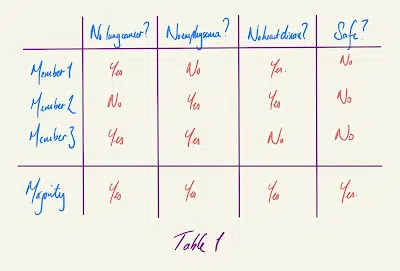 No lung cancer? No emphysema? No heart disease? Safe?
Member 1 Yes No Yes. No
Member 2 No Yes Yes No
Member 3 Yes Yes No No
Majority Yes Yes Yes Yes.
Table 1